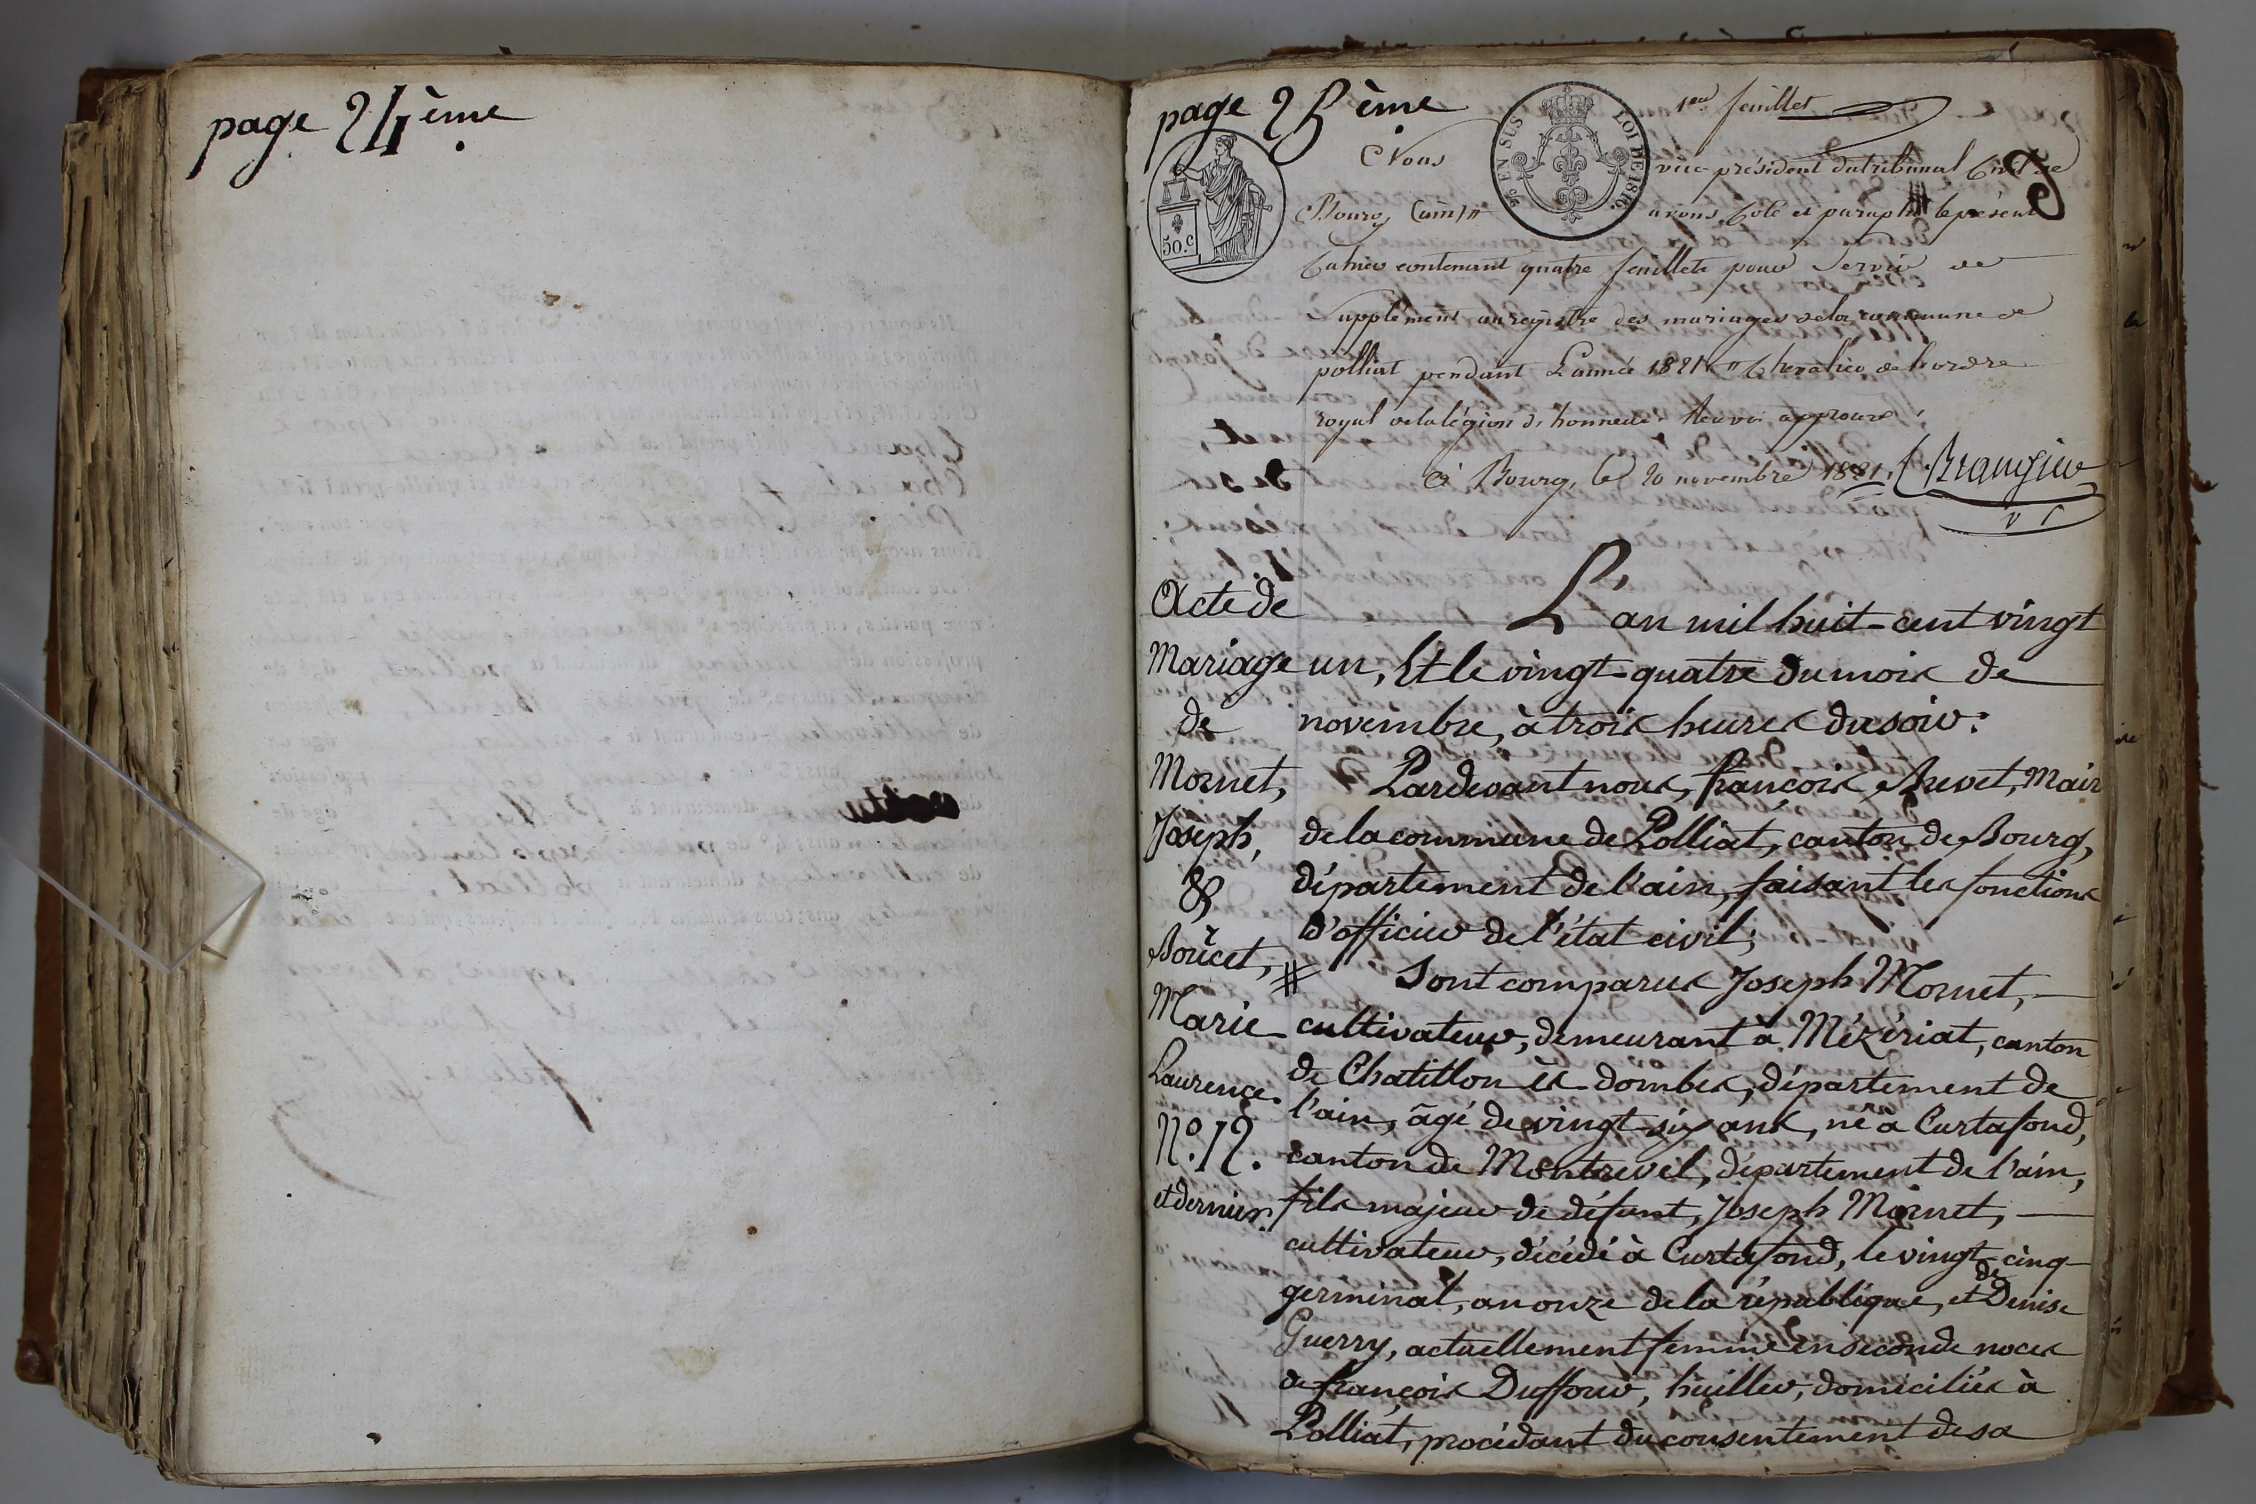 page 24ème.
page 25ème.
1er feuillet
EN SUS
LOI DE 1816.
50.c
Nous vice-président du tribunal Civil de
Bourg (ain) avons Coté et paraphé le présent
Cahier contenant quatre feuillets pour Servir de
Supplément au registre des mariages de la commune de
polliat pendant L'année 1821 Chevalier de l'ordre
royal de la légion d'honneur Renvoi approuvé
à Bourg, le 20 novembre 1821.
Acte de
Mariage
de
Mornet,
Joseph,
&
Bouvet,
Marie
Laurence.
N.º 12.
et dernier.
L'an mil huit-cent vingt
un, Et le vingt-quatre du mois de
novembre, à trois heures du soir:
Pardevant nous, françois Buevet, Mair
de la commune de Polliat, canton de Bourg,
département de l'ain, faisant les fonctions
d'officier de l'état civil;
Sont comparus Joseph Mornet,
cultivateur, demeurant à Mézériat, canton
de Chatillon ès dombes, département de
l'ain, âgé de vingt-six ans, né à Curtafond,
canton de Montrevel, département de l'ain,
fils majeur de défunt, Joseph Mornet,
cultivateur, décédé à Curtafond, le vingt-cinq
germinal, an onze de la république, et de Denise
Guerry, actuellement femme en seconde noces
de françois Duffour, huillier, domiciliés à
Polliat, procédant du consentement de sa